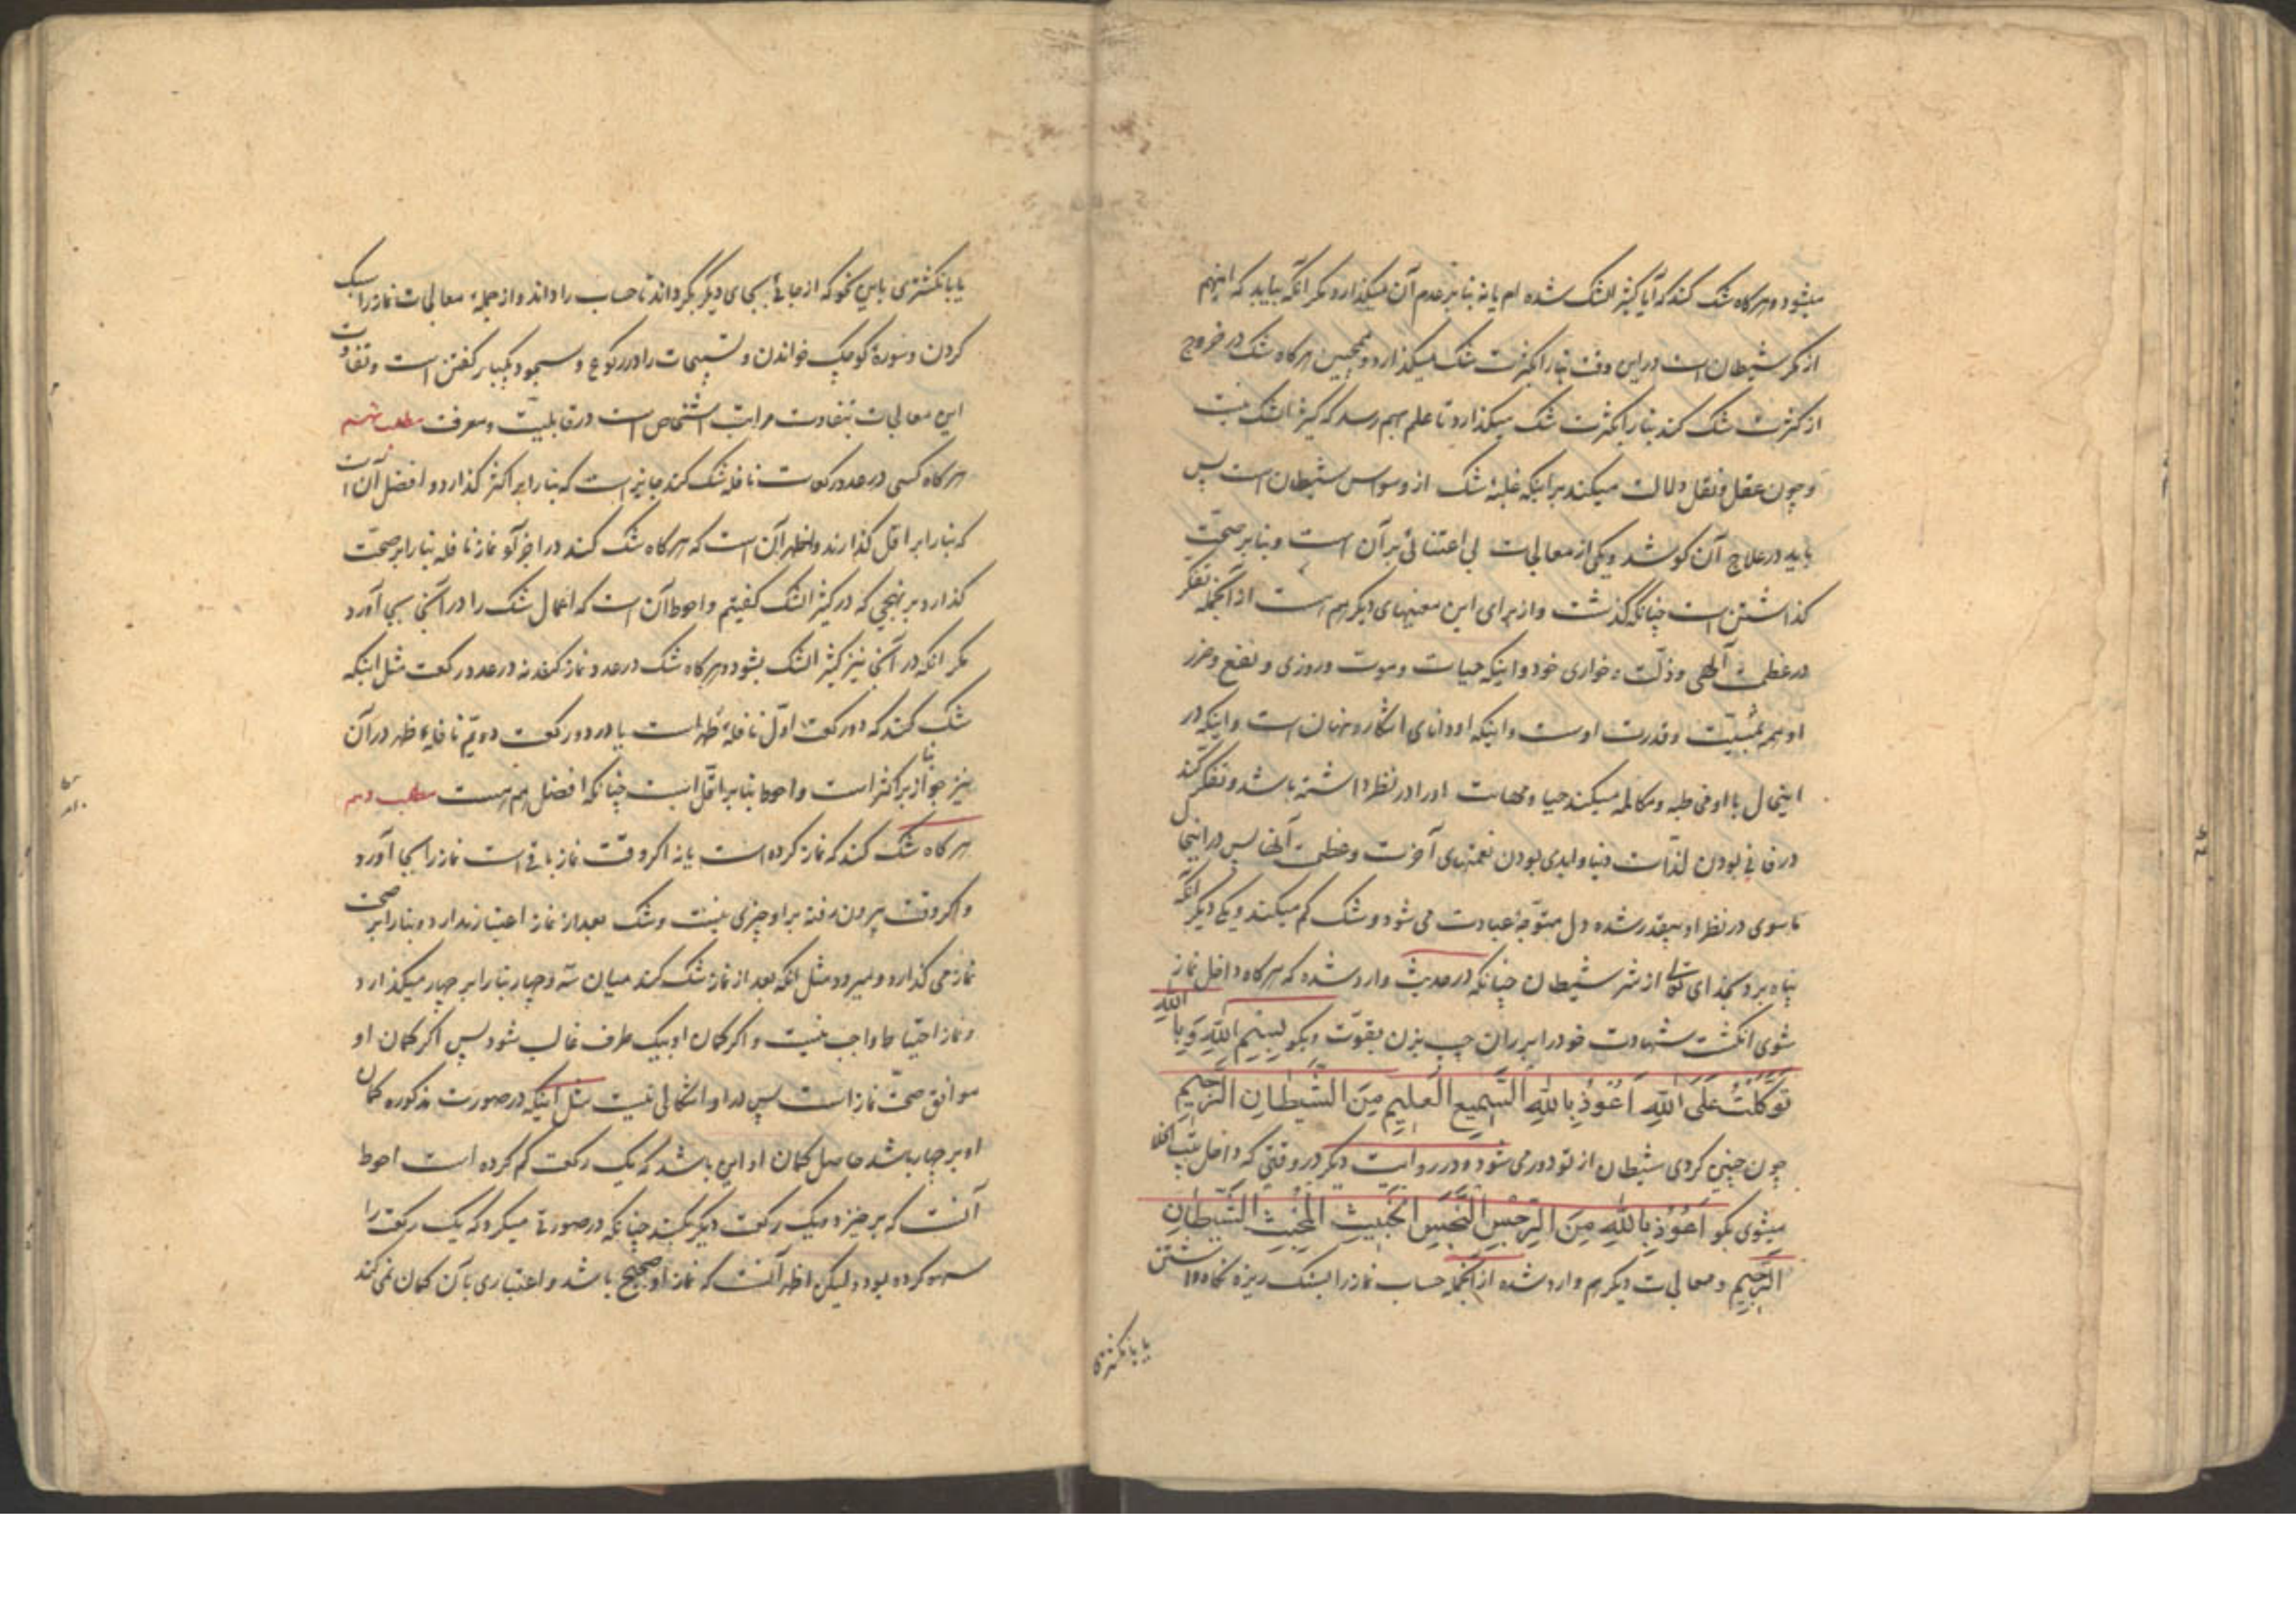 میشود و هر کاه شک کند که آیا کثیر الشک شده ام یا نه بنا بر عدم آن میکذارد مکر آنکه بیابد که اینهم
از مکر شیطان است در این وقت بنا را بکثرت شک میکذارد و همچنین هر کاه شک در خروج
از کثرت شک کند بنا را بکثرت شک میکذارد تا علم بهم رسد که کثیر الشک نیست
و چون عقل و نقل دلالت میکند بر اینکه غلبهٔ شک از وسواس شیطان است پس
باید در علاج آن کوشد و یکی از معالجات بی اعتنائی بر آن است و بنا بر صحّت
کذاشتن است چنانکه کذشت و از برای این معنیهای دیکر هم هست از آنجمله تفکر
در عظمت آلهی و ذلّت و خواری خود و اینکه حیات و موت و روزی و نفع و ضرر
او همه بمشیّت و قدرت اوست و اینکه او دانای اشکار و نهان است و اینکه در
اینحال با او مخاطبه و مکالمه میکند حیا و مهابت او را در نظر داشته باشد و تفکر کند
در فانی بودن لذّات دنیا و ابدی بودن نعمتهای آخرت و عظمت آنها پس در اینجا
ماسوی در نظر او بیقدر شده دل متوجّه عبادت می شود و شک کم میکند و یکی دیکر آنکه
پناه برد بخدای تعالی از شر شیطان چنانکه در حدیث وارد شده که هر کاه داخل نماز
شوی انکشت شهادت خود را بر ران چپ بزن بقوّت و بکو بِسْمِ اللهِ وَ بِاللهِ
تَوَکَّلْتُ عَلَی اللهِ اَعُوْذُ بِاللهِ السَّمِیعِ العَلِیمِ مِنَ الشَّیْطَانِ الرَّجِیمِ
چون چنین کردی شیطان از تو دور می شود و در روایت دیکر در وقتی که داخل بیت الخلا
میشوی بکو اَعُوْذُ بِاللهِ مِنَ الرِّجْسِ النَّجِسِ الخَبِیثِ المُخْبِثِ الشَّیْطَانِ
الرَّجِیمِ و معالجات دیکر هم وارد شده از آنجمله حساب نماز را بسنک ریزه نکاه داشتن
یا بانکشتری
یا بانکشتری باین نحو که از جائی بجای دیکر بکرداند تا حساب را داند و از جمله معالجات نماز را سبک
کردن و سورهٔ کوچک خواندن و تسبیحات را در رکوع و سجود یکبار کفتن است و تفاوت
این معالجات بتفاوت مراتب اشخاص است در قابلیّت و معرفت مطلب نهم
هر کاه کسی در عدد رکعات نافله شک کند جایز است که بنا را بر اکثر کذارد و افضل آن است
که بنا را بر اقل کذارند و اظهر آن است که هر کاه شک کند در اجزآء نماز نافله بنا را بر صحّت
کذارد بر نهجی که در کثیر الشک کفتیم و احوط آن است که اعمال شک را در آنجا بجا آورد
مکر انکه در آنجا نیز کثیر الشک بشود و هر کاه شک در عدد نماز کند نه در عدد رکعت مثل اینکه
شک کند که دو رکعت اوّل نافلهٔ ظهر است یا در دو رکعت دویّم نافلهٔ ظهر در آن
نیز جواز بنا بر اکثر است و احوط بنا بر اقلّ است چنانکه افضل هم هست مطلب دهم
هر کاه شک کند که نماز کرده است یا نه اکر وقت نماز باقی است نماز را بجا آورد
و اکر وقت بیرون رفته بر او چیزی نیست و شک بعد از نماز اعتبار ندارد و بنا را بر صحت
نماز می کذارد و میرود مثل انکه بعد از نماز شک کند میان سه و چهار بنا را بر چهار میکذارد
و نماز احتیاط واجب نیست و اکر کمان او بیک طرف غالب شود پس اکر کمان او
موافق صحّت نماز است پس در او اشکالی نیست مثل اینکه در صورت مذکوره کمان
او بر چهار باشد حاصل کمان او این باشد که یک رکعت کم کرده است احوط
آنست که برخیزد و یک رکعت دیکر بکند چنانکه در صورتی میکرد که یک رکعت را
سهو کرده بود ولیکن اظهر آنست که نماز او صحیح باشد و اعتباری بآن کمان نمی کند